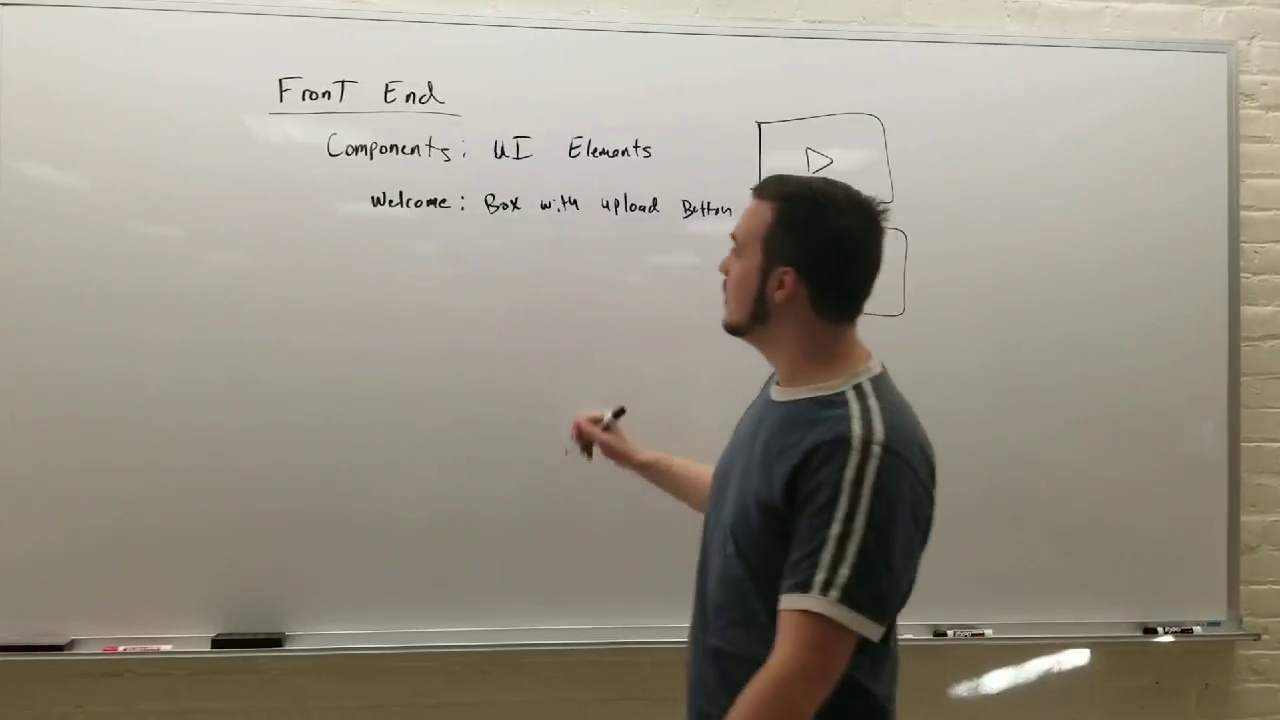 FronT End
Components: UI Elements
Welcome: Box with upload Button
EXPO
EXPO